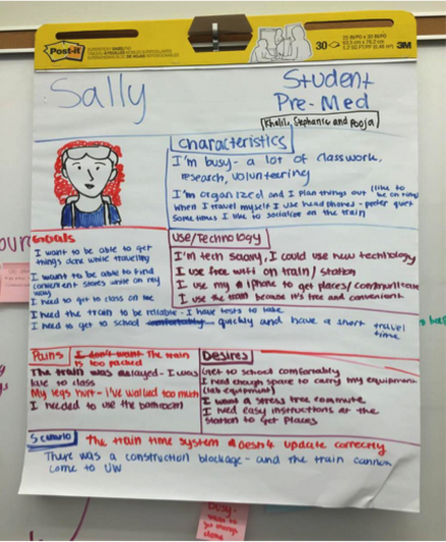 Post-it
30
3M
Sally
Student
Pre-Med
Khalil, Stephanie and Pooja
Characteristics
I'm busy - a lot of classwork,
research, volunteering
I'm organized and I plan things out (like to be on time)
When I travel myself I use head phones - prefer quiet
Sometimes I like to socialize on the train
Goals
I want to be able to get
things done while traveling
I want to be able to find
convenient stores while on my
way
I need to get to class on time
I need the train to be reliable - I have tests to take
I need to get to school comfortably quickly and have a short travel
time
Use/Technology
I'm tech savvy, I could use new technology
I use free wifi on train / station
I use my iphone to get places/communicate
I use the train because it's free and convenient
Pains
I don't want The train
is too packed
The train was delayed - I was
late to class
My legs hurt - I've walked too much
I needed to use the bathroom
Desires
Get to school comfortably
I need enough space to carry my equipment
(lab equipment)
I want a stress free commute
I need easy instructions at the
station to get places
Scenario
The train time system doesn't update correctly
There was a construction blockage - and the train cannot
come to UW
busy-